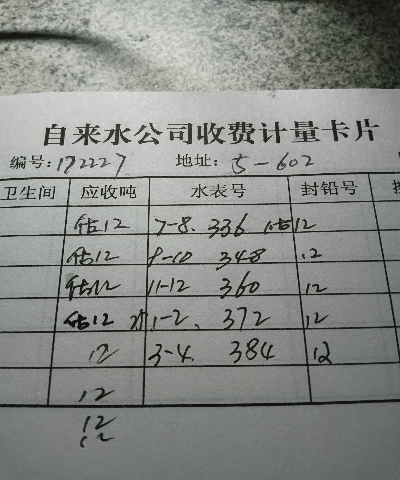 自来水公司收费计量卡片
编号: 172227 地址: 5-602
卫生间 应收吨 水表号 封铅号
估12 7-8. 336 估12
估12 8-10 348 12
估12 11-12 360 12
估12 1-2. 372 12
12 3-4. 384 12
12
12
12